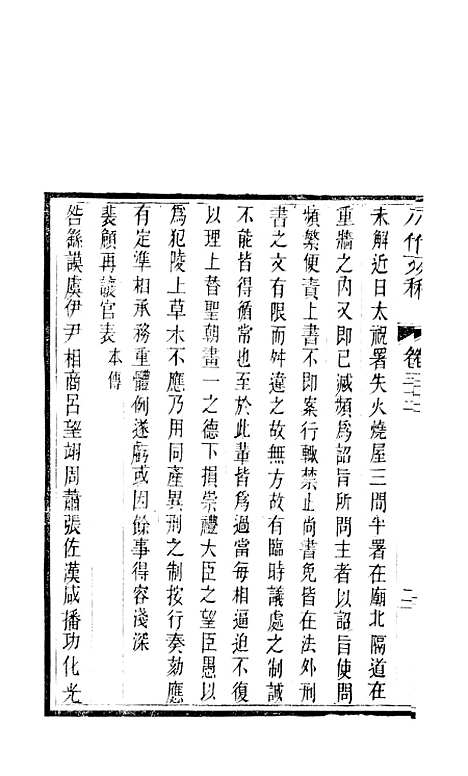 未解近日太祝署失火燒屋三間半署在廟北隔道在
重牆之內又即已滅頻爲詔旨所問主者以詔旨使問
頻繁便責上書不即案行輙禁止尚書免皆在法外刑
書之文有限而舛違之故無方故有臨時議處之制誠
不能皆得循常也至於此輩皆爲過當每相逼迫不復
以理上替聖朝畫一之德下損崇禮大臣之望臣愚以
爲犯陵上草木不應乃用同產異刑之制按行奏劾應
有定準相承務重體例遂虧或因餘事得容淺深
裴頠再讓官表本傳
咎繇謨虞伊尹相商呂望翊周蕭張佐漢咸播功化光